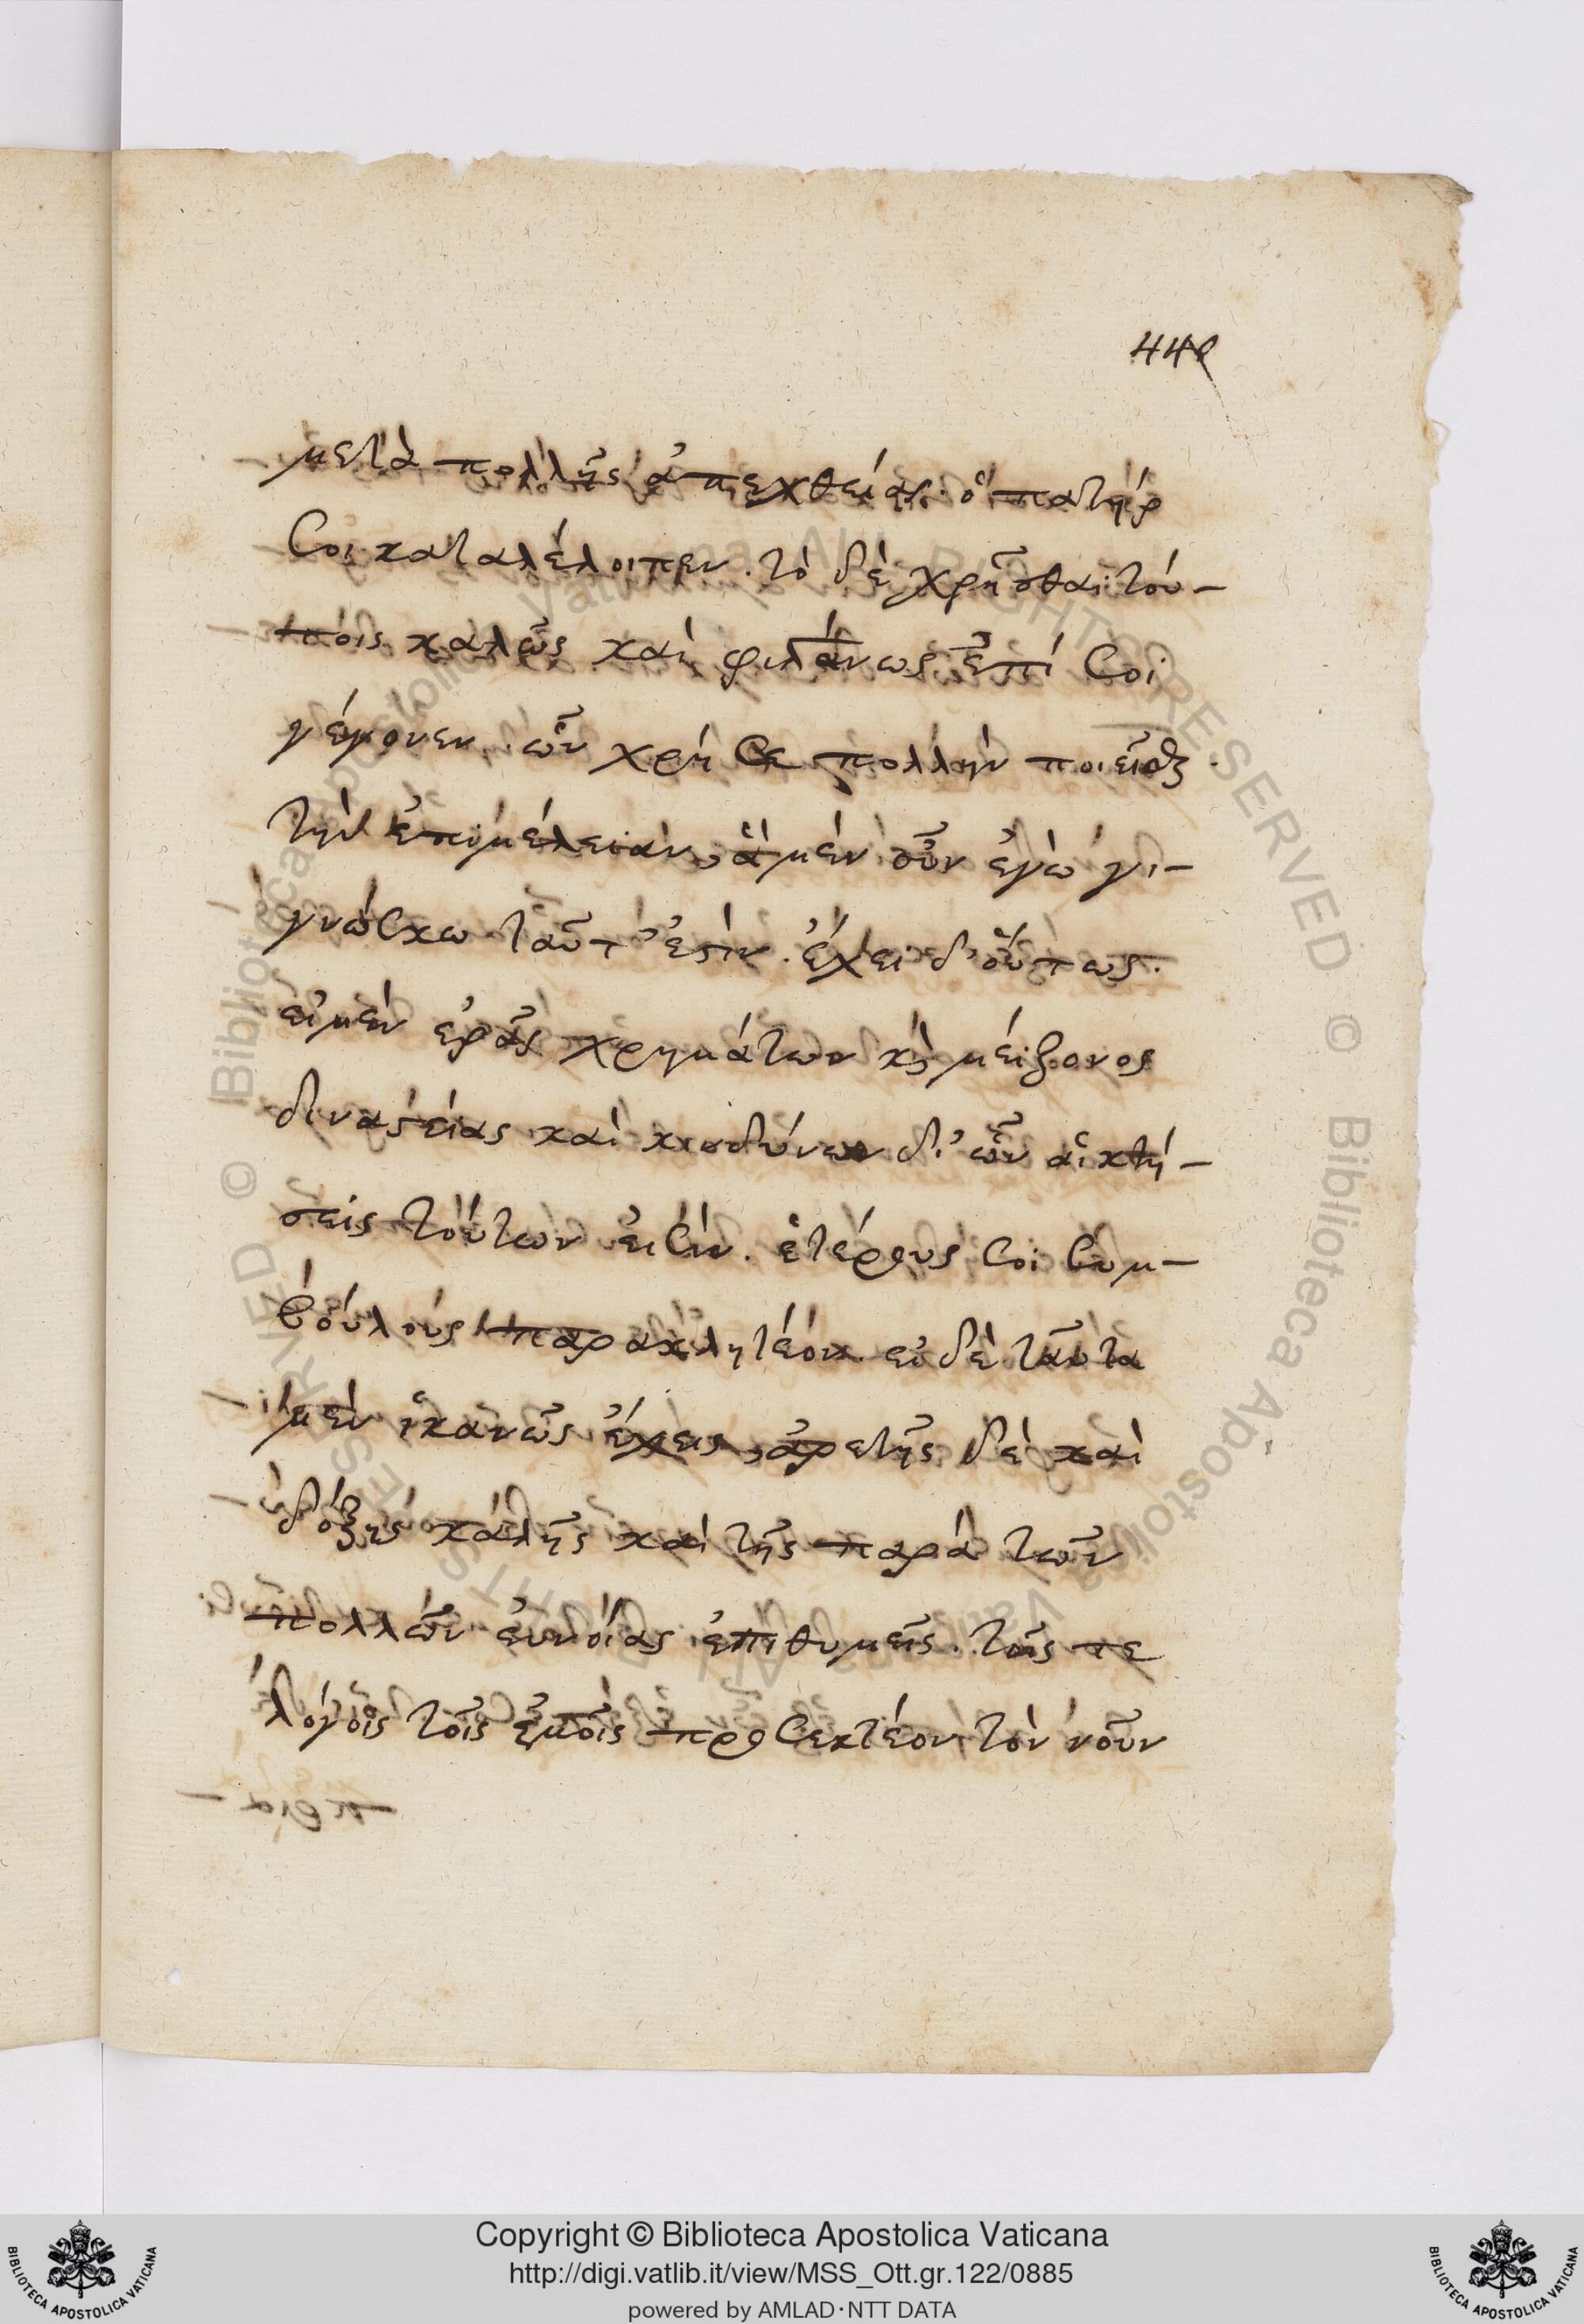 440
μετὰ πολλῆς ἀπεχθείας ὁ πατήρ
σοι καταλέλοιπεν. τὸ δὲ χρῆσθαι τού-
τοις καλῶς καὶ φιλάνως ἐπί σοι
γέγονεν. ὧν χρή σε πολλὴν ποιεῖσθαι
τὴν ἐπιμέλειαν, ἃ μὲν οὖν ἐγὼ γι-
γνώσκω ταῦτ' ἐστίν. ἔχει δ' οὕτως.
εἰ μὲν ἐρᾷς χρημάτων κὶ μείζονος
δυναστείας καὶ κινδύνων δι' ὧν αἱ κτή-
σεις τούτων εἰσίν. ἑτέρους σοι συμ-
βούλους παρακλητέον. εἰ δὲ ταῦτα
μὲν ἱκανῶς ἔχεις, ἀρετῆς δὲ καὶ
δόξης καλῆς καὶ τῆς παρὰ τῶν
πολλῶν εὐνοίας ἐπιθυμεῖς. τοῖς τε
λόγοις τοῖς ἐμοῖς προσεκτέον τὸν νοῦν
Copyright © Biblioteca Apostolica Vaticana
http://digi.vatlib.it/view/MSS_Ott.gr.122/0885
powered by AMLAD·NTT DATA